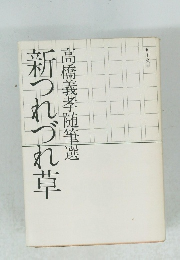 高橋義孝随筆選
新つれづれ草